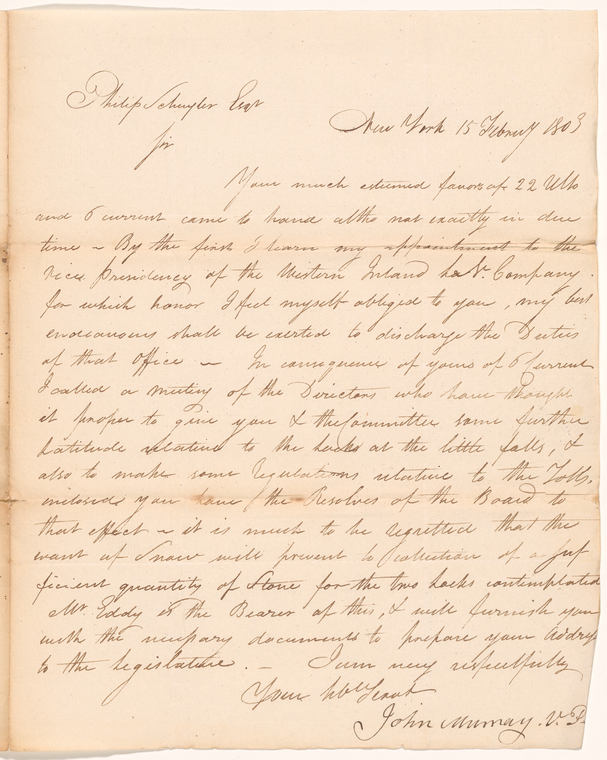 Philip Schuyler Esqr
New York 15 Februy 1803
Sir
Your much esteemed favors of 22 Ulto
and 6 current came to hand altho not exactly in due
time ~ By the first I learn my appointment to the
Vice Presidency of the Western Inland Company.
for which honor I feel myself obliged to you, my best
endeavours shall be exerted to discharge the Duties
of that Office ~ In consequence of yours of 6 Current
I called a meeting of the Directors who have thought
it proper to give you & the Committee some further
Latitude relative to the Locks at the little falls, &
also to make some regulations relative to the Tolls,
inclosed you have the Resolves of the Board to
that effect ~ it is much to be regretted that the
want of Snow will prevent collection of a Suf
ficient quantity of Stone for the two Locks contemplated
Mr. Eddy is the Bearer of this, & will furnish you
with the necessary documents to prepare your Address
to the Legislature. — I am very respectfully
Your Hble Servt
John Murray. V. P.